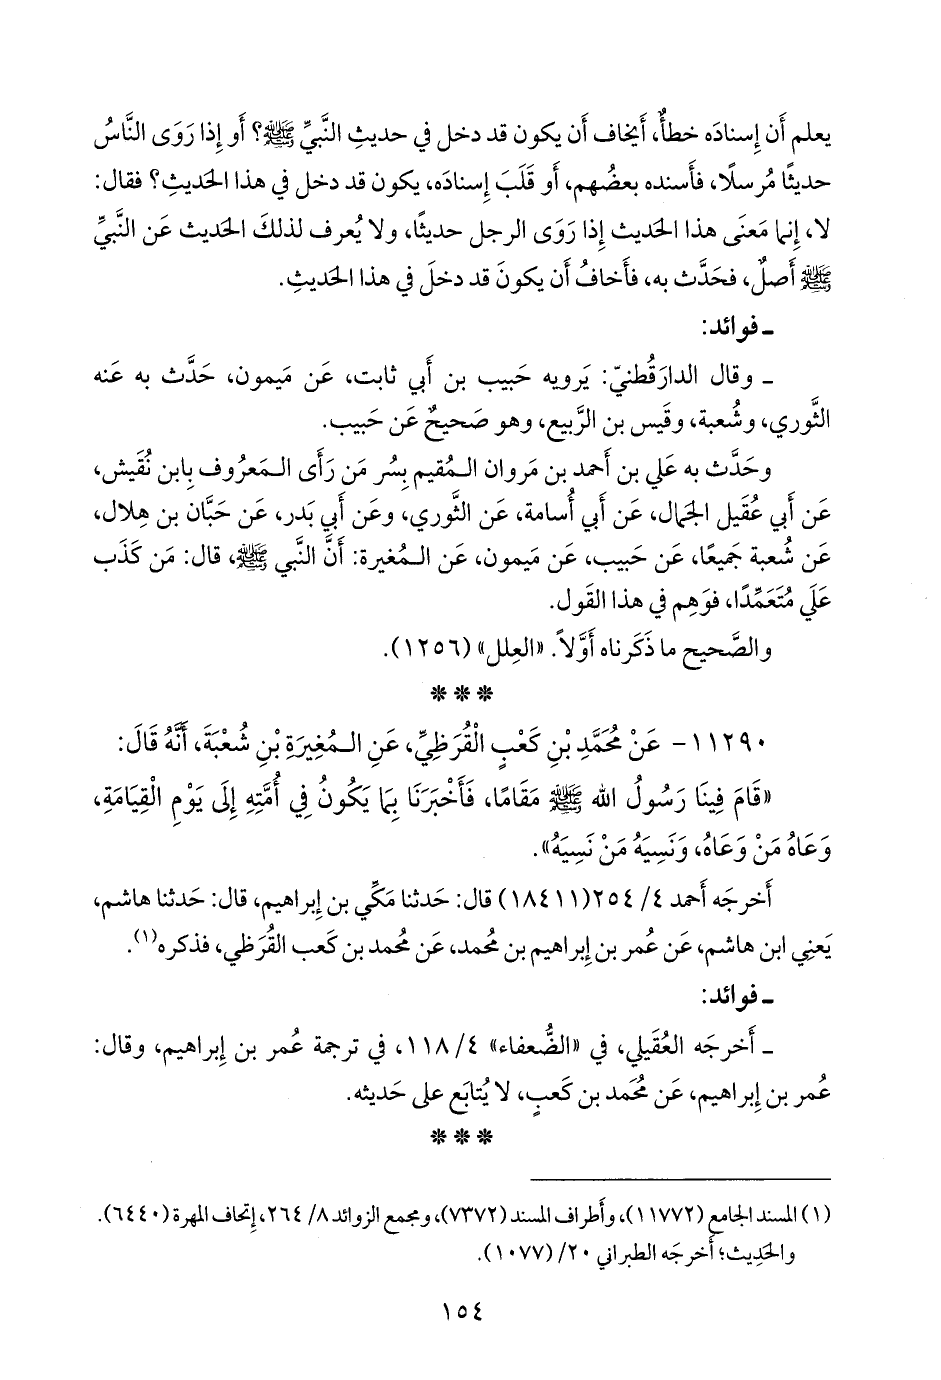 يعلم أَن إِسنادَه خطأٌ، أَيخاف أَن يكون قد دخل في حديثِ النَّبيِّ ﷺ؟ أَو إِذا رَوَى النَّاسُ
حديثًا مُرسلًا، فأَسنده بعضُهم، أَو قَلَبَ إِسنادَه، يكون قد دخل في هذا الحَديثِ؟ فقال:
لا، إِنما مَعنَى هذا الحَديث إِذا رَوَى الرجل حديثًا، ولا يُعرف لذلكَ الحَديث عَن النَّبيِّ
ﷺ أَصلٌ، فحَدَّث به، فأَخافُ أَن يكونَ قد دخلَ في هذا الحَديثِ.
ـ فوائد:
ـ وقال الدارَقُطنيّ: يَرويه حَبيب بن أَبي ثابت، عَن مَيمون، حَدَّث به عَنه
الثَّوري، وشُعبة، وقَيس بن الرَّبيع، وهو صَحيحٌ عَن حَبيب.
وحَدَّث به عَلي بن أَحمد بن مَروان الـمُقيم بِسُر مَن رَأَى الـمَعرُوف بِابن نُقَيش،
عَن أَبي عُقَيل الجَمال، عَن أَبي أُسامة، عَن الثَّوري، وعَن أَبي بَدر، عَن حَبَّان بن هِلال،
عَن شُعبة جَميعًا، عَن حَبيب، عَن مَيمون، عَن الـمُغيرة: أَنَّ النَّبي ﷺ، قال: مَن كَذَب
عَلَي مُتَعَمِّدًا، فوَهِم في هذا القَول.
والصَّحيح ما ذَكَرناه أَوَّلاً. «العِلل» (١٢٥٦).
***
١١٢٩٠- عَنْ مُحَمَّدِ بْنِ كَعْبٍ الْقُرَظِيِّ، عَنِ الـمُغِيرَةِ بْنِ شُعْبَةَ، أَنَّهُ قَالَ:
«قَامَ فِينَا رَسُولُ الله ﷺ مَقَامًا، فَأَخْبَرَنَا بِمَا يَكُونُ فِي أُمَّتِهِ إِلَى يَوْمِ الْقِيَامَةِ،
وَعَاهُ مَنْ وَعَاهُ، وَنَسِيَهُ مَنْ نَسِيَهُ».
أَخرجَه أَحمد ٤/ ٢٥٤(١٨٤١١) قال: حَدثنا مَكِّي بن إِبراهيم، قال: حَدثنا هاشم،
يَعنِي ابن هاشم، عَن عُمر بن إِبراهيم بن مُحمد، عَن مُحمد بن كَعب القُرَظي، فذكره(١).
ـ فوائد:
ـ أَخرجَه العُقَيلي، في «الضُّعفاء» ٤/ ١١٨، في ترجمة عُمر بن إِبراهيم، وقال:
عُمر بن إِبراهيم، عَن مُحمد بن كَعبٍ، لا يُتابَع على حَديثه.
***
(١) المسند الجامع (١١٧٧٢)، وأَطراف المسند (٧٣٧٢)، ومجمع الزوائد ٨/ ٢٦٤، إِتحاف المهرة (٦٤٤٠).
والحَدِيث؛ أَخرجَه الطبراني ٢٠/ (١٠٧٧).
١٥٤